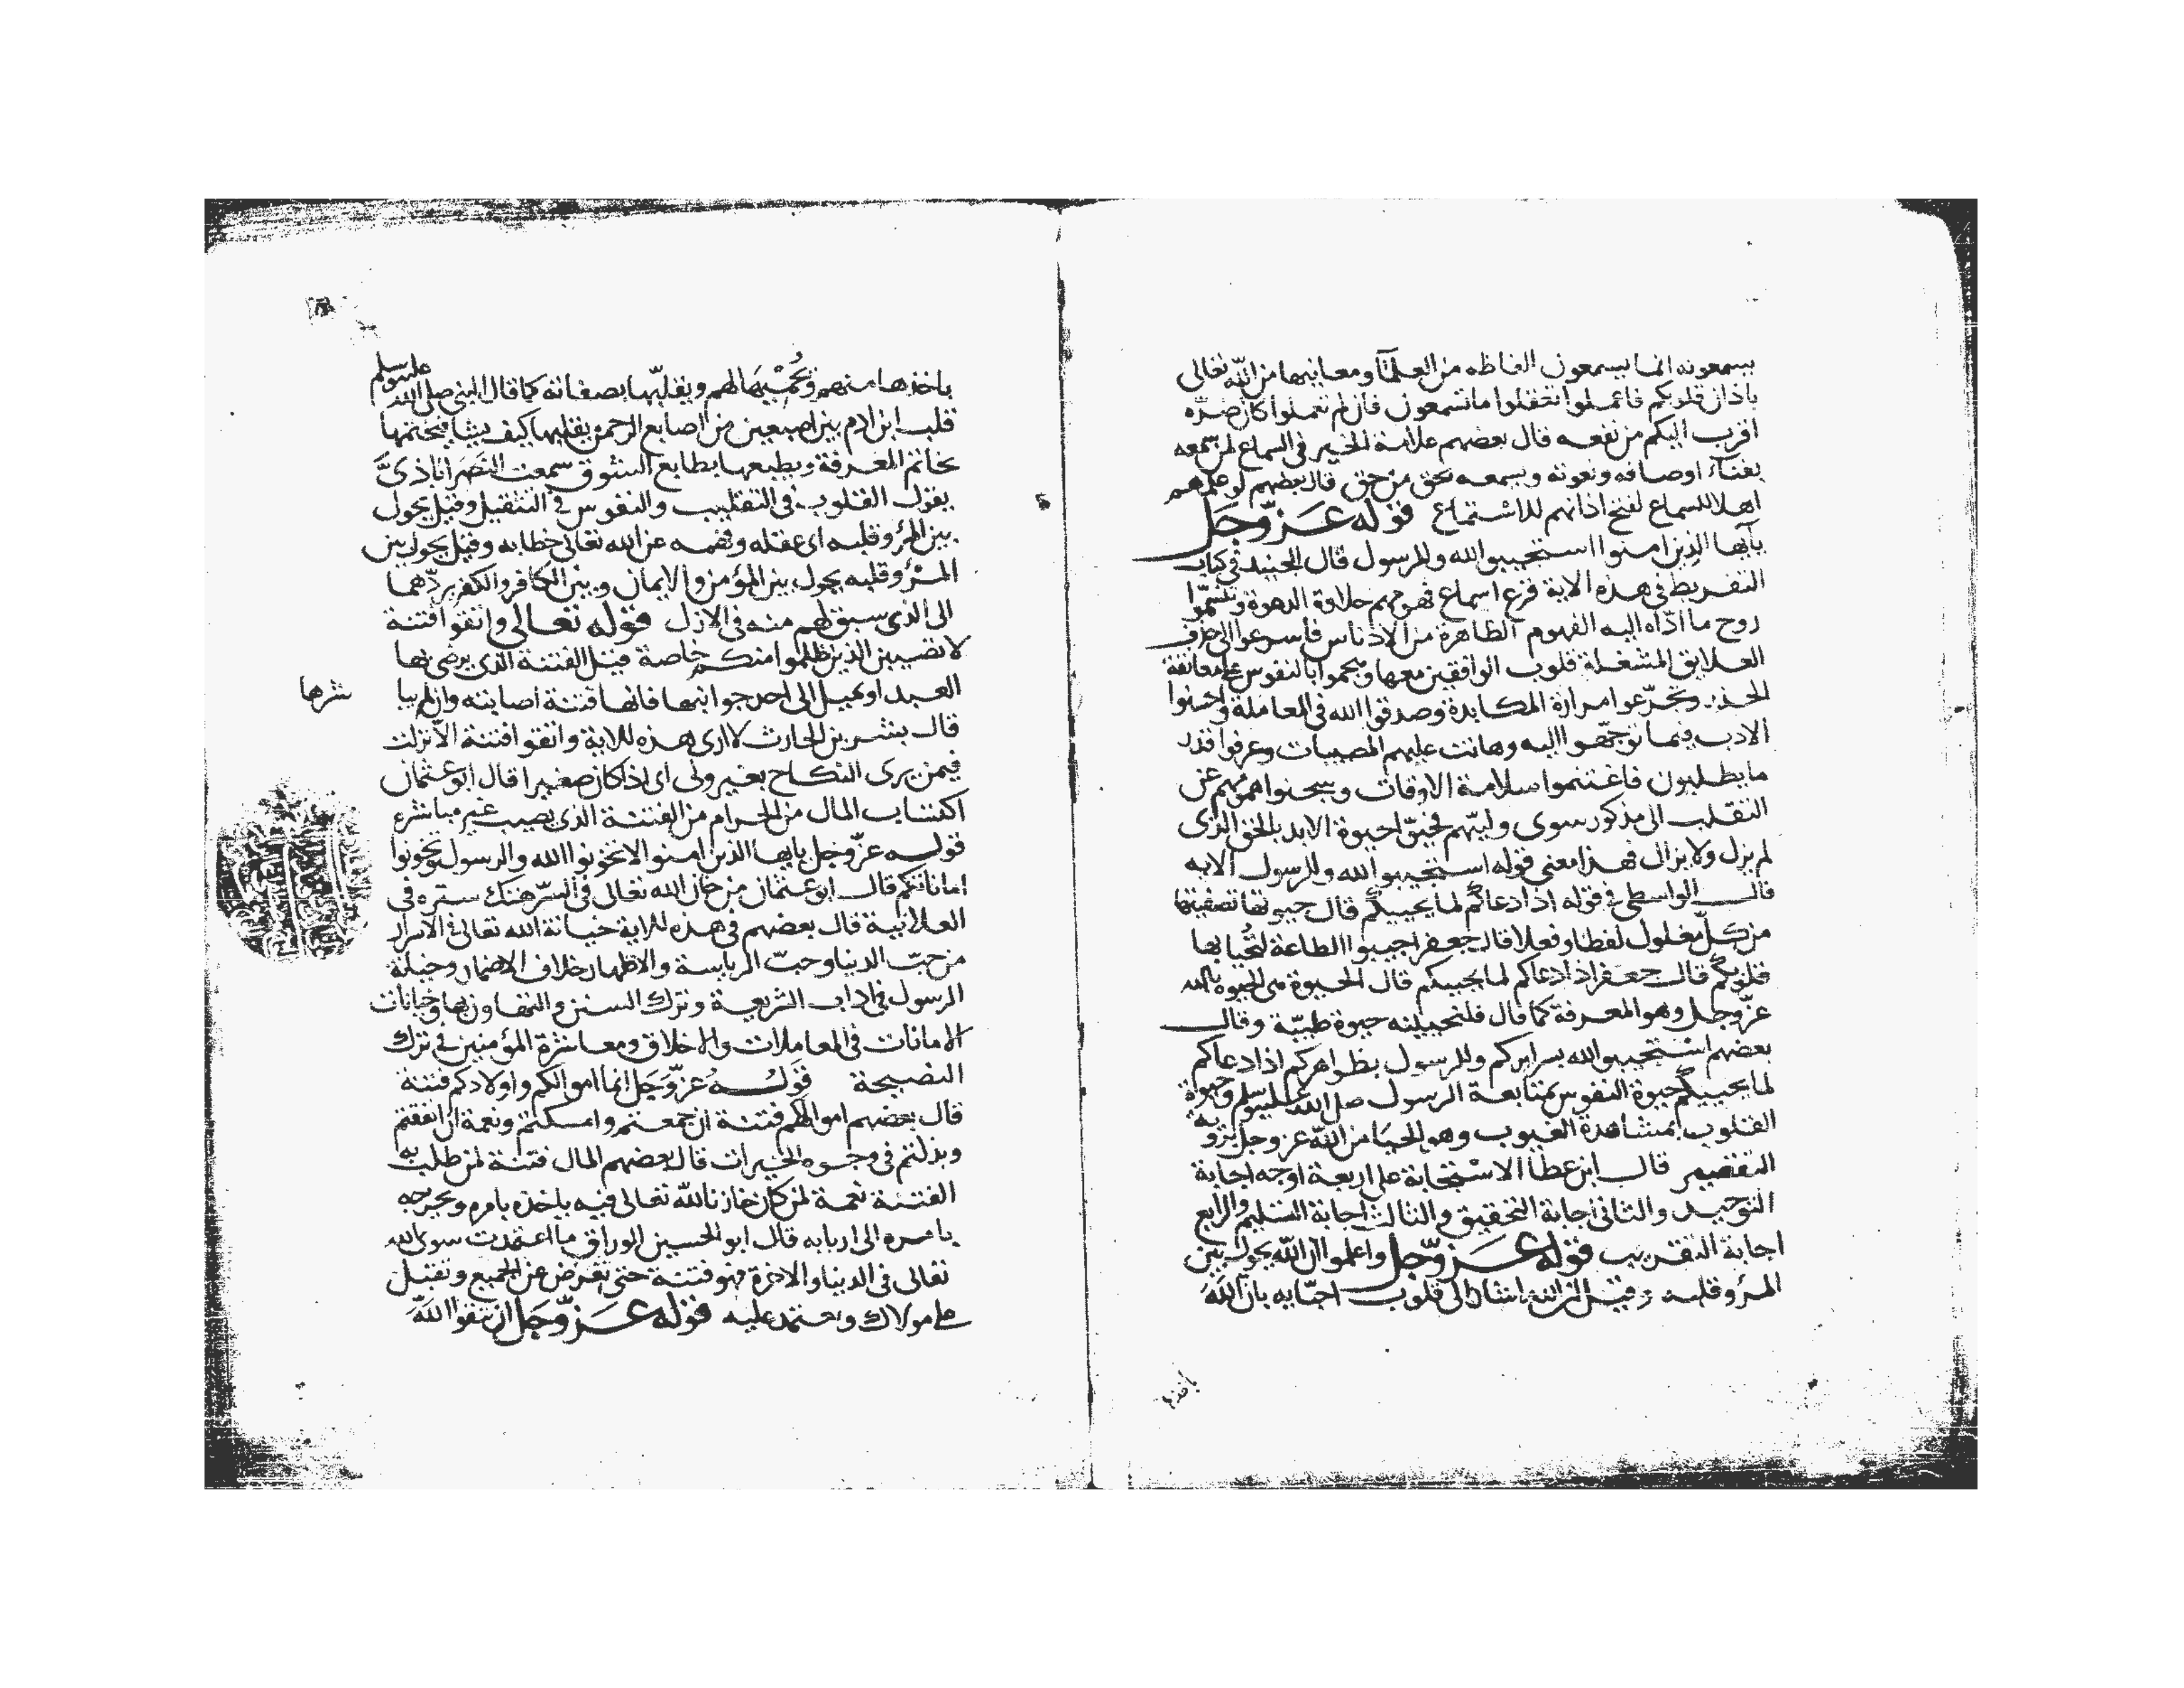 يسمعونه انما يسمعون الفاظه من العلمآ ومعانيها من الله تعالى
باذان قلوبكم فاعملوا تعقلوا ما تسمعون فان لم تعملوا كان ضره
اقرب اليكم من نفعه قال بعضهم علامة الخير في السماع لمن سمعه
بفنآء اوصافه ونعوته ويسمعه بحق من حق قال بعضهم لو علمهم
اهلا للسماع لفتح اذانهم للاستماع قوله عز وجل
يآيها الذين امنوا استجيبوا لله وللرسول قال الجنيد في كتاب
التفريط في هذه الاية قرع اسماع فهومهم حلاوة الدعوة وتنسموا
روح ما اداه اليه الفهوم الظاهرة من الادناس فاسرعوا الى حذف
العلايق المشغلة قلوب الواقفين معها وهجموا بالنفوس على معانقة
الحذر وتجرعوا مرارة المكابدة وصدقوا الله في المعاملة واحسنوا
الادب فيما توجهوا اليه وهانت عليهم المصيبات وعرفوا قدر
ما يطلبون فاغتنموا سلامة الاوقات وسجنوا همومهم عن
التقلب الى مذكور سوى وليهم فحيوا حيوة الابد بالحق الذى
لم يزل ولا يزال فهذا معنى قوله استجيبوا لله وللرسول الاية
قال الواسطى في قوله اذا دعاكم لما يحييكم قال حيوتها تصفيتها
من كل معلول لفظا وفعلا قال جعفر اجيبوا الطاعة لتحيا بها
قلوبكم قال جعفر اذا دعاكم لما يحييكم قال الحيوة هى الحيوة بالله
عز وجل وهو المعرفة كما قال فلنحيينه حيوة طيبة وقال
بعضهم استجيبوا لله بسرايركم وللرسول بظواهركم اذا دعاكم
لما يحييكم حيوة النفوس بمتابعة الرسول صلى الله عليه وسلم وحيوة
القلوب بمشاهدة الغيوب وهو الحيا من الله عز وجل برؤية
التقصير قال ابن عطا الاستجابة على اربعة اوجه اجابة
التوحيد والثانى اجابة التحقيق والثالث اجابة التسليم والرابع
اجابة التقريب قوله عز وجل واعلموا ان الله يحول بين
المرء وقلبه وقيل ان الله اشار الى قلوب احبايه بان الله
ياخذها
ياخذها منهم ويحميها لهم ويقلبها بصفاته كما قال النبى صلى الله عليه وسلم
قلب ابن ادم بين اصبعين من اصابع الرحمن يقلبها كيف يشا فيختمها
بخاتم المعرفة ويطبعها بطابع الشوق سمعت النصراباذى
يقول القلوب في التقليب والنفوس في التنقيل وقيل يحول
بين المرء وقلبه اى عقله وفهمه عن الله تعالى خطابه وقيل يحول بين
المرء وقلبه يحول بين المؤمن والايمان وبين الكافر والكفر يردهما
الى الذى سبق لهم منه في الازل قوله تعالى واتقوا فتنة
لا تصيبن الذين ظلموا منكم خاصة قيل الفتنة الذى يرضى بها
العبد او يميل الى احد جوانبها فانها فتنة اصابته وان لم يبا
شرها
قال بشر بن الحارث لا ارى هذه للاية واتقوا فتنة الا نزلت
فيمن يرى النكاح بغير ولى اى اذا كان صغيرا قال ابو عثمان
اكتساب المال من الحرام من الفتنة الذى يصيب غير مباشره
قوله عز وجل يايها الذين امنوا لا تخونوا الله والرسول وتخونوا
اماناتكم قال ابو عثمان من خان الله تعالى في السر هتك ستره في
العلانية قال بعضهم في هذه للاية خيانة الله تعالى في الاسرار
من حب الدنيا وحب الرياسة والاظهار خلاف الاضمار وخيانة
الرسول في اداب الشريعة وترك السنن والتهاون بها وخيانات
الامانات في المعاملات والاخلاق ومعاشرة المؤمنين في ترك
النصيحة قوله عز وجل انما اموالكم واولادكم فتنة
قال بعضهم اموالكم فتنة ان جمعتم وامسكتم ونعمة ان انفقتم
وبذلتم في وجوه الخيرات قال بعضهم المال فتنة لمن طلب به
الفتنة نعمة لمن كان خازنا لله تعالى فيه ياخذه بامره ويخرجه
بامره الى اربابه قال ابو الحسين الوراق ما اعتمدت سوى الله
تعالى في الدنيا والاخرة فهو فتنة حتى تعرض عن الجميع وتقبل
على مولاك وتعتمد عليه قوله عز وجل ان تتقوا الله